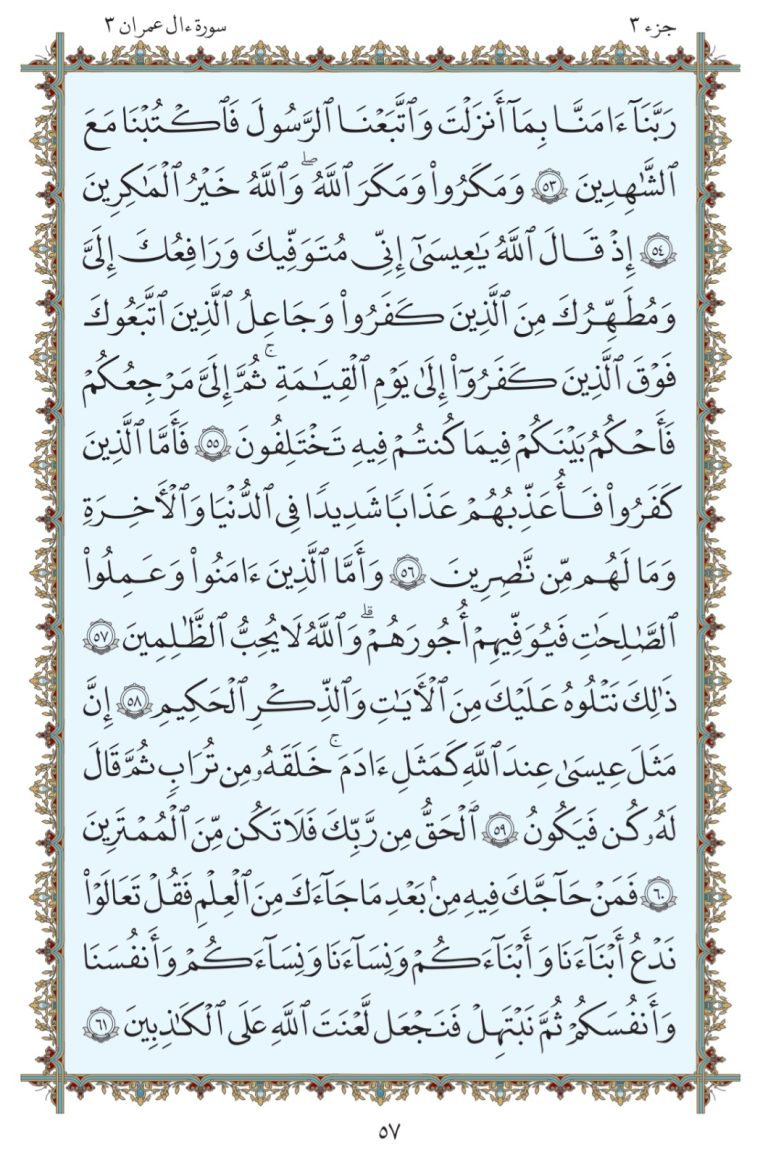 جزء ٣
سورة ءال عمران ٣
رَبَّنَآ ءَامَنَّا بِمَآ أَنزَلْتَ وَٱتَّبَعْنَا ٱلرَّسُولَ فَٱكْتُبْنَا مَعَ
ٱلشَّٰهِدِينَ ٥٣ وَمَكَرُوا۟ وَمَكَرَ ٱللَّهُ ۖ وَٱللَّهُ خَيْرُ ٱلْمَٰكِرِينَ
٥٤ إِذْ قَالَ ٱللَّهُ يَٰعِيسَىٰٓ إِنِّى مُتَوَفِّيكَ وَرَافِعُكَ إِلَىَّ
وَمُطَهِّرُكَ مِنَ ٱلَّذِينَ كَفَرُوا۟ وَجَاعِلُ ٱلَّذِينَ ٱتَّبَعُوكَ
فَوْقَ ٱلَّذِينَ كَفَرُوٓا۟ إِلَىٰ يَوْمِ ٱلْقِيَٰمَةِ ۚ ثُمَّ إِلَىَّ مَرْجِعُكُمْ
فَأَحْكُمُ بَيْنَكُمْ فِيمَا كُنتُمْ فِيهِ تَخْتَلِفُونَ ٥٥ فَأَمَّا ٱلَّذِينَ
كَفَرُوا۟ فَأُعَذِّبُهُمْ عَذَابًا شَدِيدًا فِى ٱلدُّنْيَا وَٱلْأَخِرَةِ
وَمَا لَهُم مِّن نَّٰصِرِينَ ٥٦ وَأَمَّا ٱلَّذِينَ ءَامَنُوا۟ وَعَمِلُوا۟
ٱلصَّٰلِحَٰتِ فَيُوَفِّيهِمْ أُجُورَهُمْ ۗ وَٱللَّهُ لَا يُحِبُّ ٱلظَّٰلِمِينَ ٥٧
ذَٰلِكَ نَتْلُوهُ عَلَيْكَ مِنَ ٱلْأَيَٰتِ وَٱلذِّكْرِ ٱلْحَكِيمِ ٥٨ إِنَّ
مَثَلَ عِيسَىٰ عِندَ ٱللَّهِ كَمَثَلِ ءَادَمَ ۚ خَلَقَهُۥ مِن تُرَابٍ ثُمَّ قَالَ
لَهُۥ كُن فَيَكُونُ ٥٩ ٱلْحَقُّ مِن رَّبِّكَ فَلَا تَكُن مِّنَ ٱلْمُمْتَرِينَ
٦٠ فَمَنْ حَآجَّكَ فِيهِ مِنۢ بَعْدِ مَا جَآءَكَ مِنَ ٱلْعِلْمِ فَقُلْ تَعَالَوْا۟
نَدْعُ أَبْنَآءَنَا وَأَبْنَآءَكُمْ وَنِسَآءَنَا وَنِسَآءَكُمْ وَأَنفُسَنَا
وَأَنفُسَكُمْ ثُمَّ نَبْتَهِلْ فَنَجْعَل لَّعْنَتَ ٱللَّهِ عَلَى ٱلْكَٰذِبِينَ ٦١
٥٧